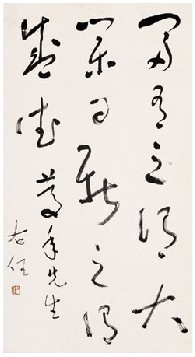 富有之謂大
業日新之謂
盛德 先生
右任